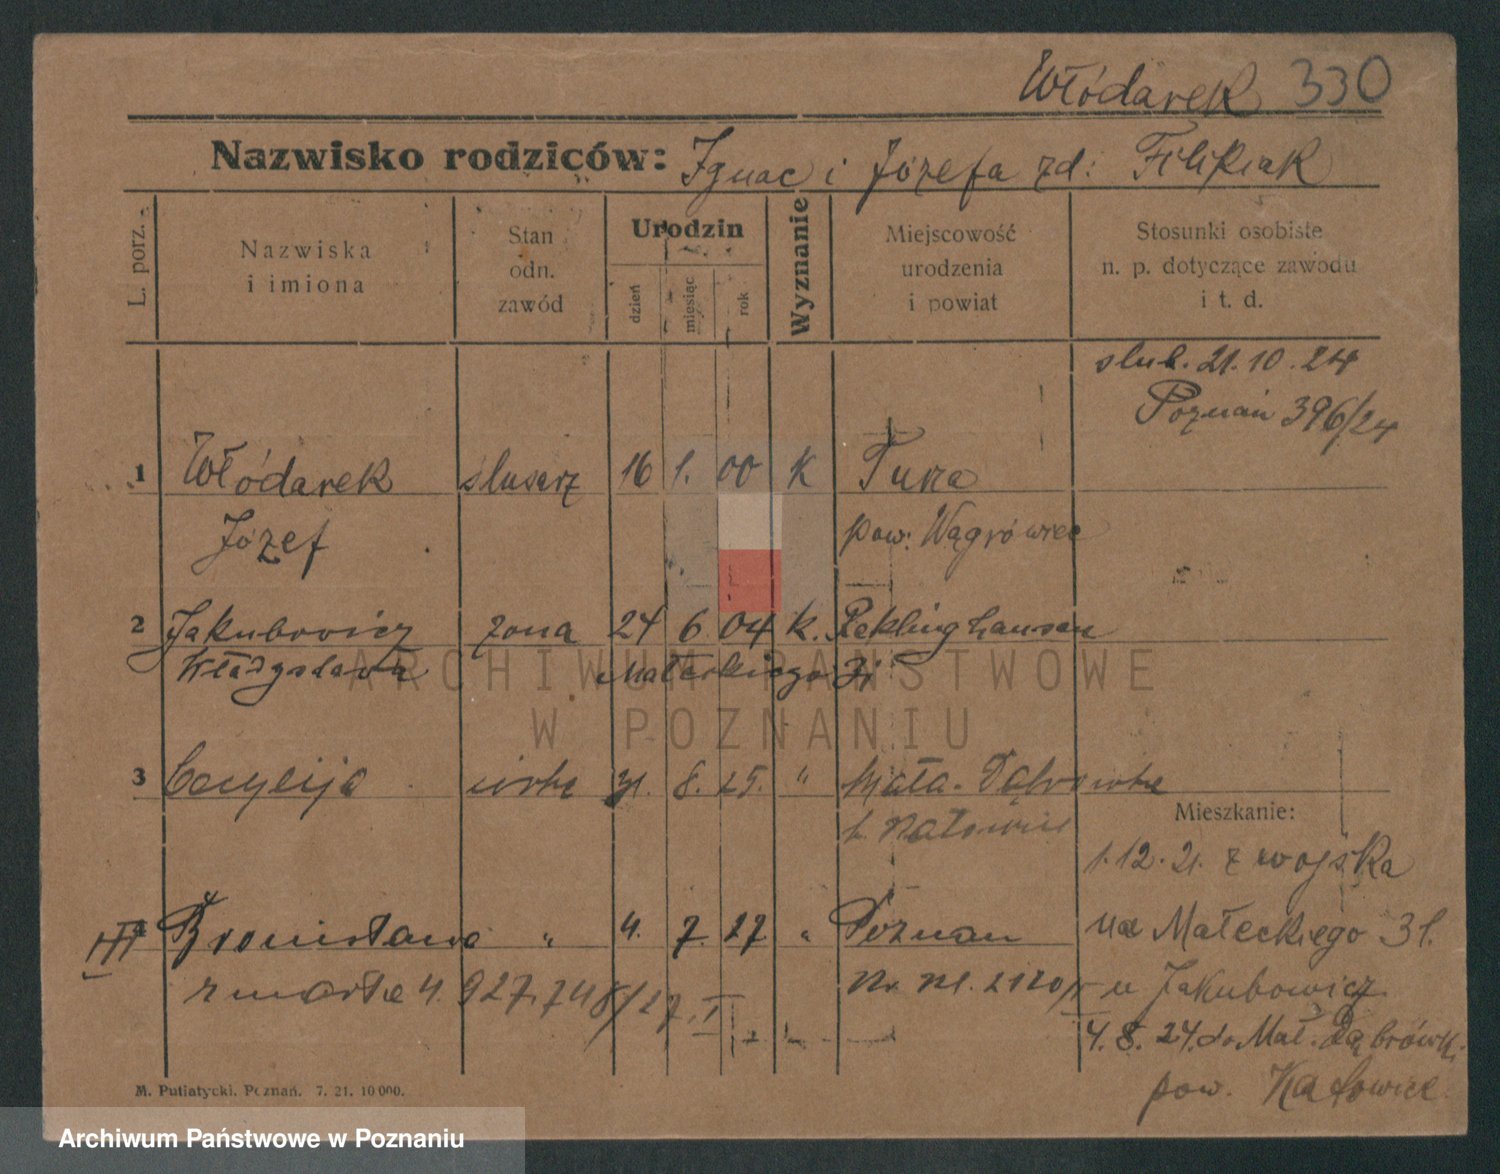 Włódarek 330
Nazwisko rodziców: Ignac i Józefa zd: Filipiak
L. porz.
Nazwiska i imiona
Stan odn. zawód
Urodzin
dzień
miesiąc
rok
Wyznanie
Miejscowość urodzenia i powiat
Stosunki osobiste n. p. dotyczące zawodu i t. d.
slub. 21.10.24
Poznań 396/24
1 Włódarek slusarz 16 1. 00 K Tuża
Józef pow: Wągrówiec
2 Jakubowicz zona 24 6 04 K. Reklinghausen
Władysława Małeckiego 31
ARCHIWUM PAŃSTWOWE
W POZNANIU
3 Cecylija córka 21. 8. 25. " Mała-Dąbrówka
k. Katowic
Mieszkanie:
1.12.21. z wojska
4 Bronisława " 4. 7. 27 " Poznań
III
ul Małeckiego 31.
zmarła 4. 927. 748/27. I Nr. Nl. 2120/
u Jakubowicz
4.8.24. do Mał. Dąbrówki
pow. Katowice
M. Putiatycki. Poznań. 7. 21. 10 000.
Archiwum Państwowe w Poznaniu